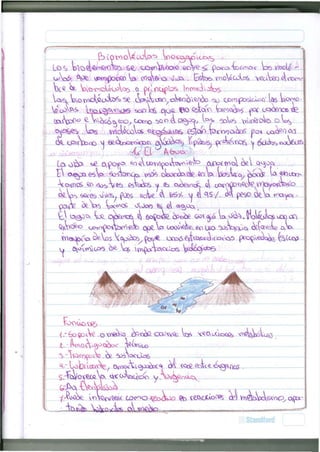 Biomoléculas Inorgánicas
Los bioelementos se combinan entre sí para formar las molé-
culas que componen la materia viva. Estas moléculas reciben el nom-
bre de biomoléculas o principios Inmediatos
Las biomoléculas se clasifican, atendiendo su composición las biomo
léculas Inorgánicas son las que no están formadas por cadenas de
carbono e hidrógeno, como son el agua, las sales minerales o los
gases. Las moléculas orgánicas están formadas por cadenas
de carbono y se denominan glúcidos, lípidos, proteínas y ácidos nucleicos
El Agua
La vida se apoya en el comportamiento anormal del agua
El agua es la sustancia más abundante en la biosfera, donde la encon-
tramos en sus tres estados y es además el componente mayoritario
de los seres vivos, pues entre el 65% y el 95% del peso de la mayor
parte de las formas vivas es el agua.
El agua fue además el soporte donde surgió la vida. Molécula con un
extraño comportamiento que la convierte en una sustancia diferente a la
mayoría de los líquidos, posee unas extraordinarias propiedades físicas
y químicas de la importancia biológicas
Funciones
1.- Soporte o medio donde ocurren las reacciones metabólicas
2.- Amortiguador térmico
3.- Transporte de sustancias
4.- Lubricante, amortiguadora del roce entre órganos
5.- Favorece la circulación y turgencia
6.- Da flexibilidad
7.- Puede intervenir como reactivo en reacciones del metabolismo, apor-
tando
Standford